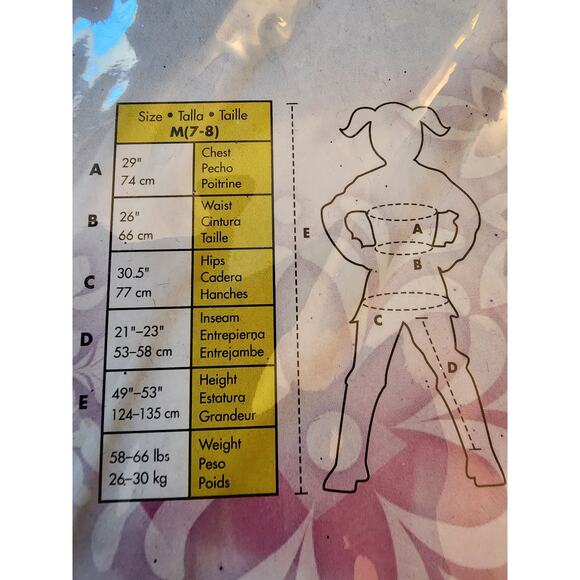 Size • Talla • Taille
M(7-8)
A
29"
74 cm
Chest
Pecho
Poitrine
B
26"
66 cm
Waist
Cintura
Taille
C
30.5"
77 cm
Hips
Cadera
Hanches
D
21"–23"
53–58 cm
Inseam
Entrepierna
Entrejambe
E
49"–53"
124–135 cm
Height
Estatura
Grandeur
58–66 lbs
26–30 kg
Weight
Peso
Poids
E
A
B
C
D